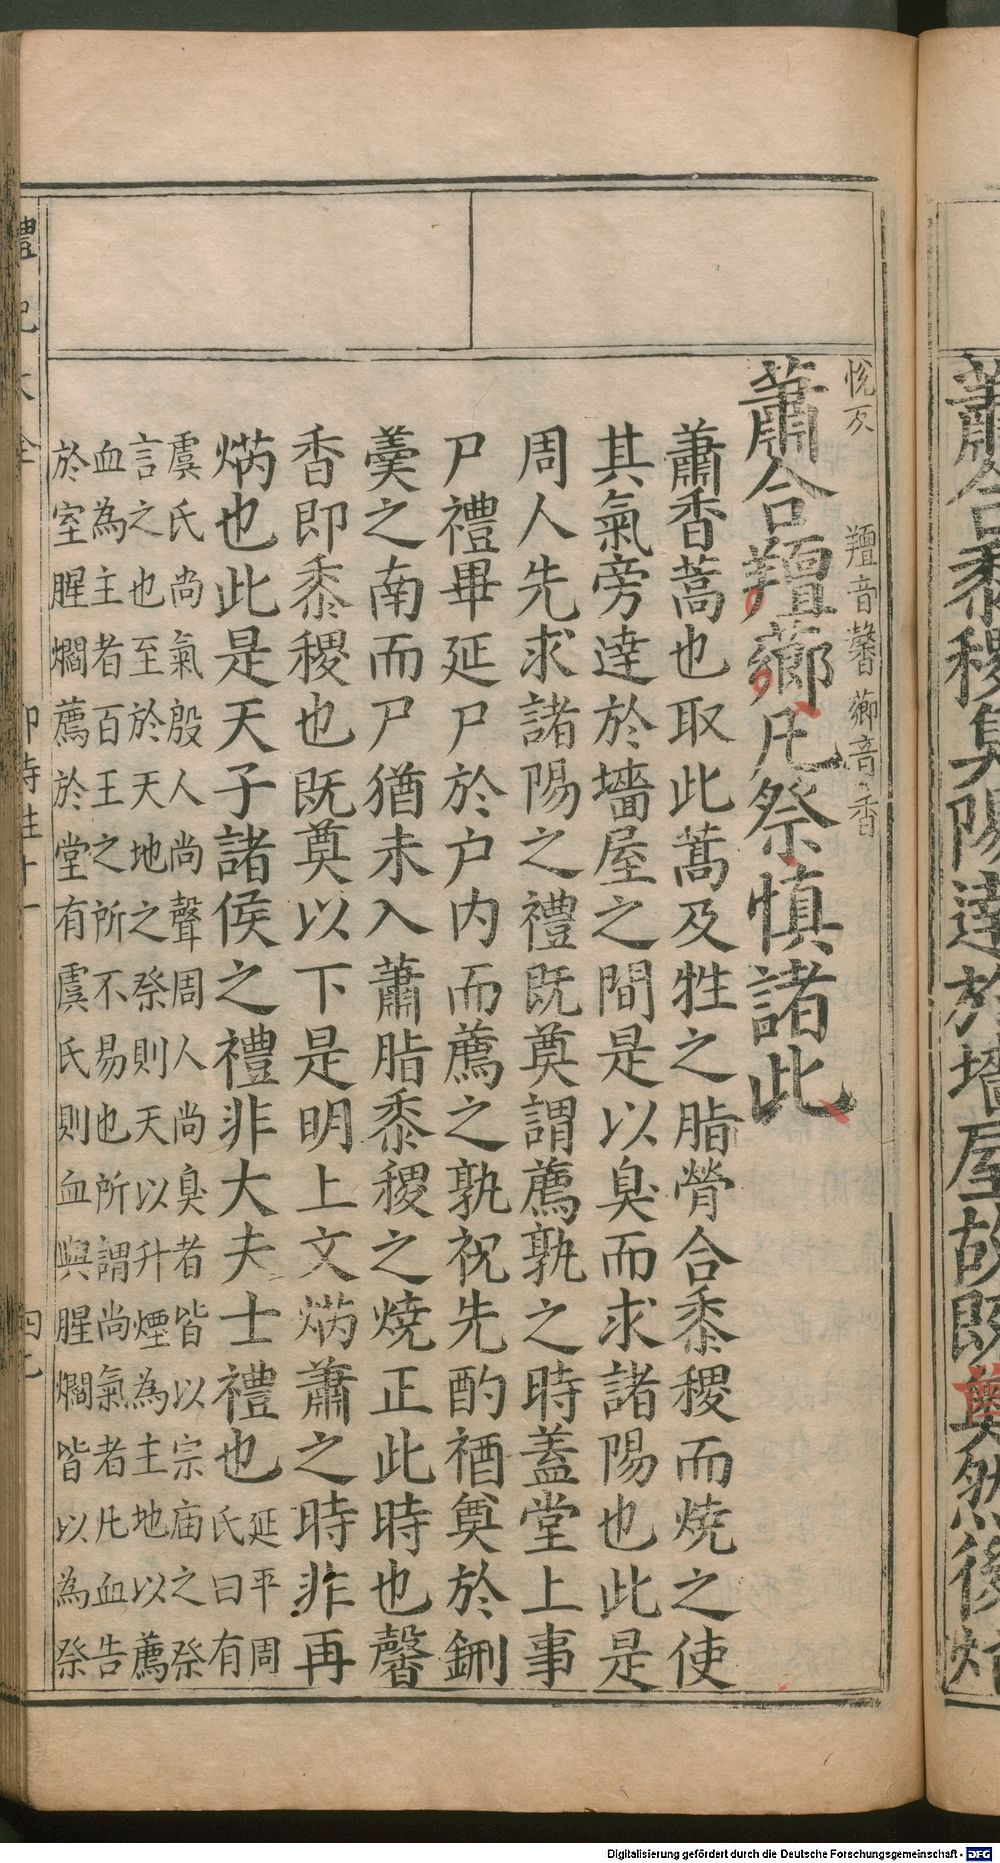 蕭合黍稷臭陽達於墻屋故既奠然後焫
悅反　羶音馨薌音香
蕭合羶薌凡祭慎諸此
蕭香蒿也取此蒿及牲之脂膋合黍稷而燒之使
其氣旁達於墻屋之間是以臭而求諸陽也此是
周人先求諸陽之禮既奠謂薦孰之時蓋堂上事
尸禮畢延尸於户内而薦之孰祝先酌酒奠於鉶
羹之南而尸猶未入蕭脂黍稷之燒正此時也馨
香即黍稷也既奠以下是明上文焫蕭之時非再
焫也此是天子諸侯之禮非大夫士禮也
延平周
氏曰有
虞氏尚氣殷人尚聲周人尚臭者皆以宗庙之祭
言之也至於天地之祭則天以升煙為主地以薦
血為主者百王之所不易也所謂尚氣者凡血告
於室腥爓薦於堂有虞氏則血與腥爓皆以為祭
禮記大全
郊特牲十一
四七
Digitalisierung gefördert durch die Deutsche Forschungsgemeinschaft - DFG